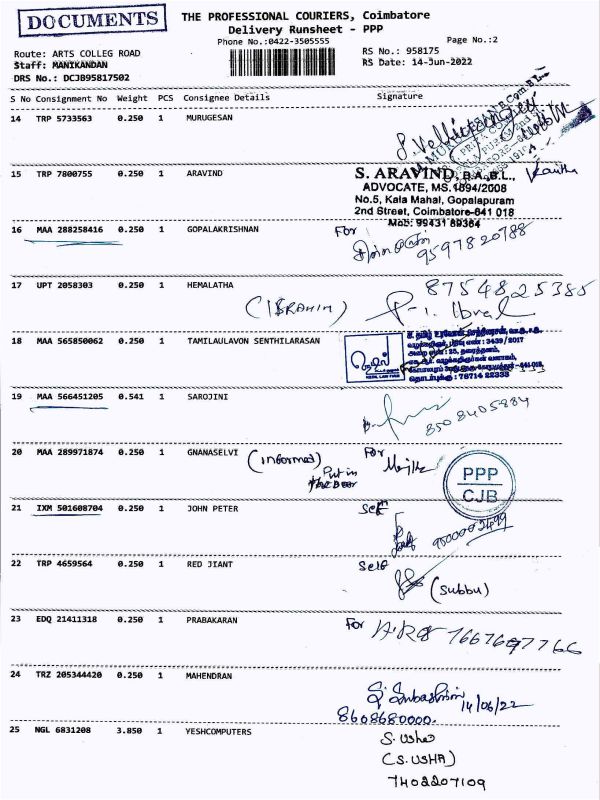 DOCUMENTS
THE PROFESSIONAL COURIERS, Coimbatore
Delivery Runsheet - PPP
Phone No.:0422-3505555
Page No.:2
Route: ARTS COLLEG ROAD
Staff: MANIKANDAN
DRS No.: DCJB95817502
RS No.: 958175
RS Date: 14-Jun-2022
S No Consignment No Weight PCS Consignee Details Signature
14 TRP 5733563 0.250 1 MURUGESAN
15 TRP 7800755 0.250 1 ARAVIND
S. ARAVIND, B.A.,B.L.,
ADVOCATE, MS.1694/2008
No.5, Kala Mahal, Gopalapuram
2nd Street, Coimbatore-641 018
Mob: 99431 89364
16 MAA 288258416 0.250 1 GOPALAKRISHNAN For
9597820788
17 UPT 2058303 0.250 1 HEMALATHA
8754825385
(IBRAHIM)
18 MAA 565850062 0.250 1 TAMILAULAVON SENTHILARASAN
19 MAA 566451205 0.541 1 SAROJINI
8508405884
20 MAA 289971874 0.250 1 GNANASELVI (informed) For
Put in
PPP
CJB
21 IXM 501608704 0.250 1 JOHN PETER Self
22 TRP 4659564 0.250 1 RED JIANT Self
(Subbu)
23 EDQ 21411318 0.250 1 PRABAKARAN For
24 TRZ 205344420 0.250 1 MAHENDRAN
14/06/22
8608680000.
25 NGL 6831208 3.850 1 YESHCOMPUTERS
S. Usha
(S.USHA)
7402207109